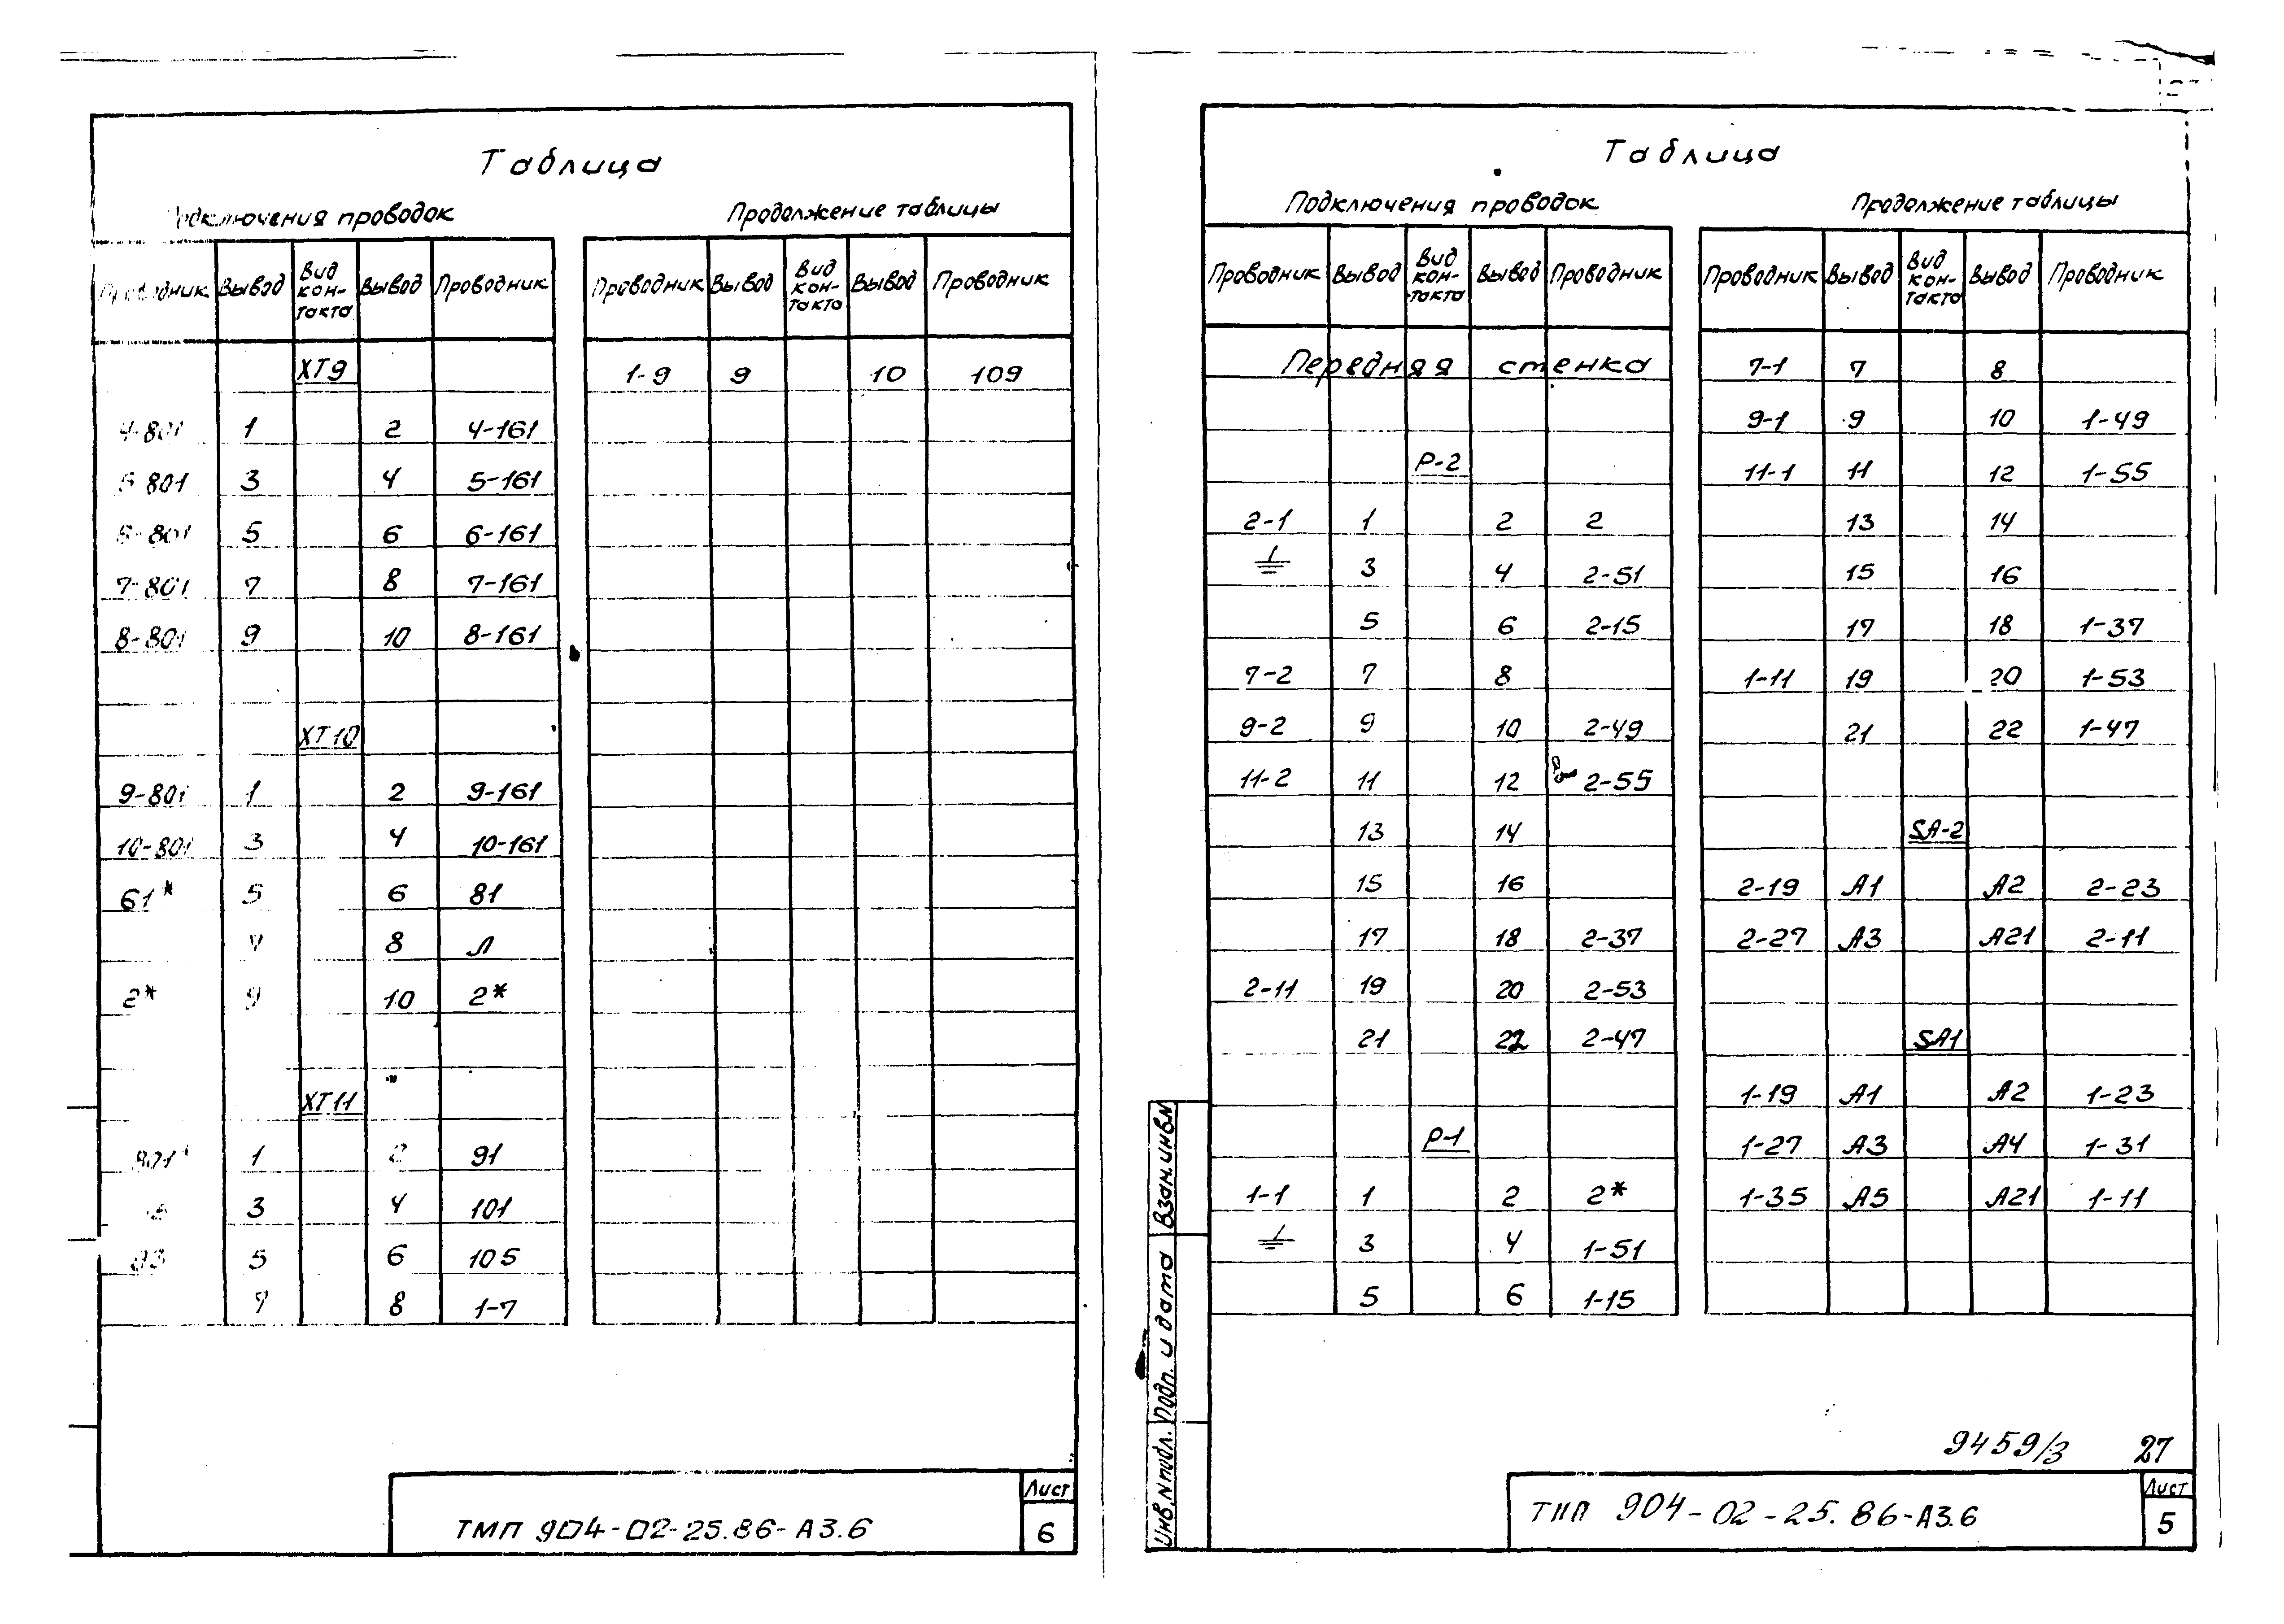 Таблица
Подключения проводок
Продолжение таблицы
Проводник Вывод Вид кон-такта Вывод Проводник
Проводник Вывод Вид кон-такта Вывод Проводник
ХТ9
4-801 1 2 4-161
5-801 3 4 5-161
6-801 5 6 6-161
7-801 7 8 7-161
8-801 9 10 8-161
ХТ10
9-801 1 2 9-161
10-801 3 4 10-161
61* 5 6 81
7 8 Л
2* 9 10 2*
ХТ11
801* 1 2 91
3 4 101
5 6 105
7 8 1-7
1-9 9 10 109
ТМП 904-02-25.86-А3.6
Лист
6
Таблица
Подключения проводок
Продолжение таблицы
Проводник Вывод Вид кон-такта Вывод Проводник
Проводник Вывод Вид кон-такта Вывод Проводник
Передняя стенка
Р-2
2-1 1 2 2
⏚ 3 4 2-51
5 6 2-15
7-2 7 8
9-2 9 10 2-49
11-2 11 12 2-55
13 14
15 16
17 18 2-37
2-11 19 20 2-53
21 22 2-47
Р-1
1-1 1 2 2*
⏚ 3 4 1-51
5 6 1-15
7-1 7 8
9-1 9 10 1-49
11-1 11 12 1-55
13 14
15 16
17 18 1-37
1-11 19 20 1-53
21 22 1-47
SA-2
2-19 А1 А2 2-23
2-27 А3 А21 2-11
SA1
1-19 А1 А2 1-23
1-27 А3 А4 1-31
1-35 А5 А21 1-11
Инв.N подл. Подп. и дата Взам.инв.N
9459/3 27
ТМП 904-02-25.86-А3.6
Лист
5